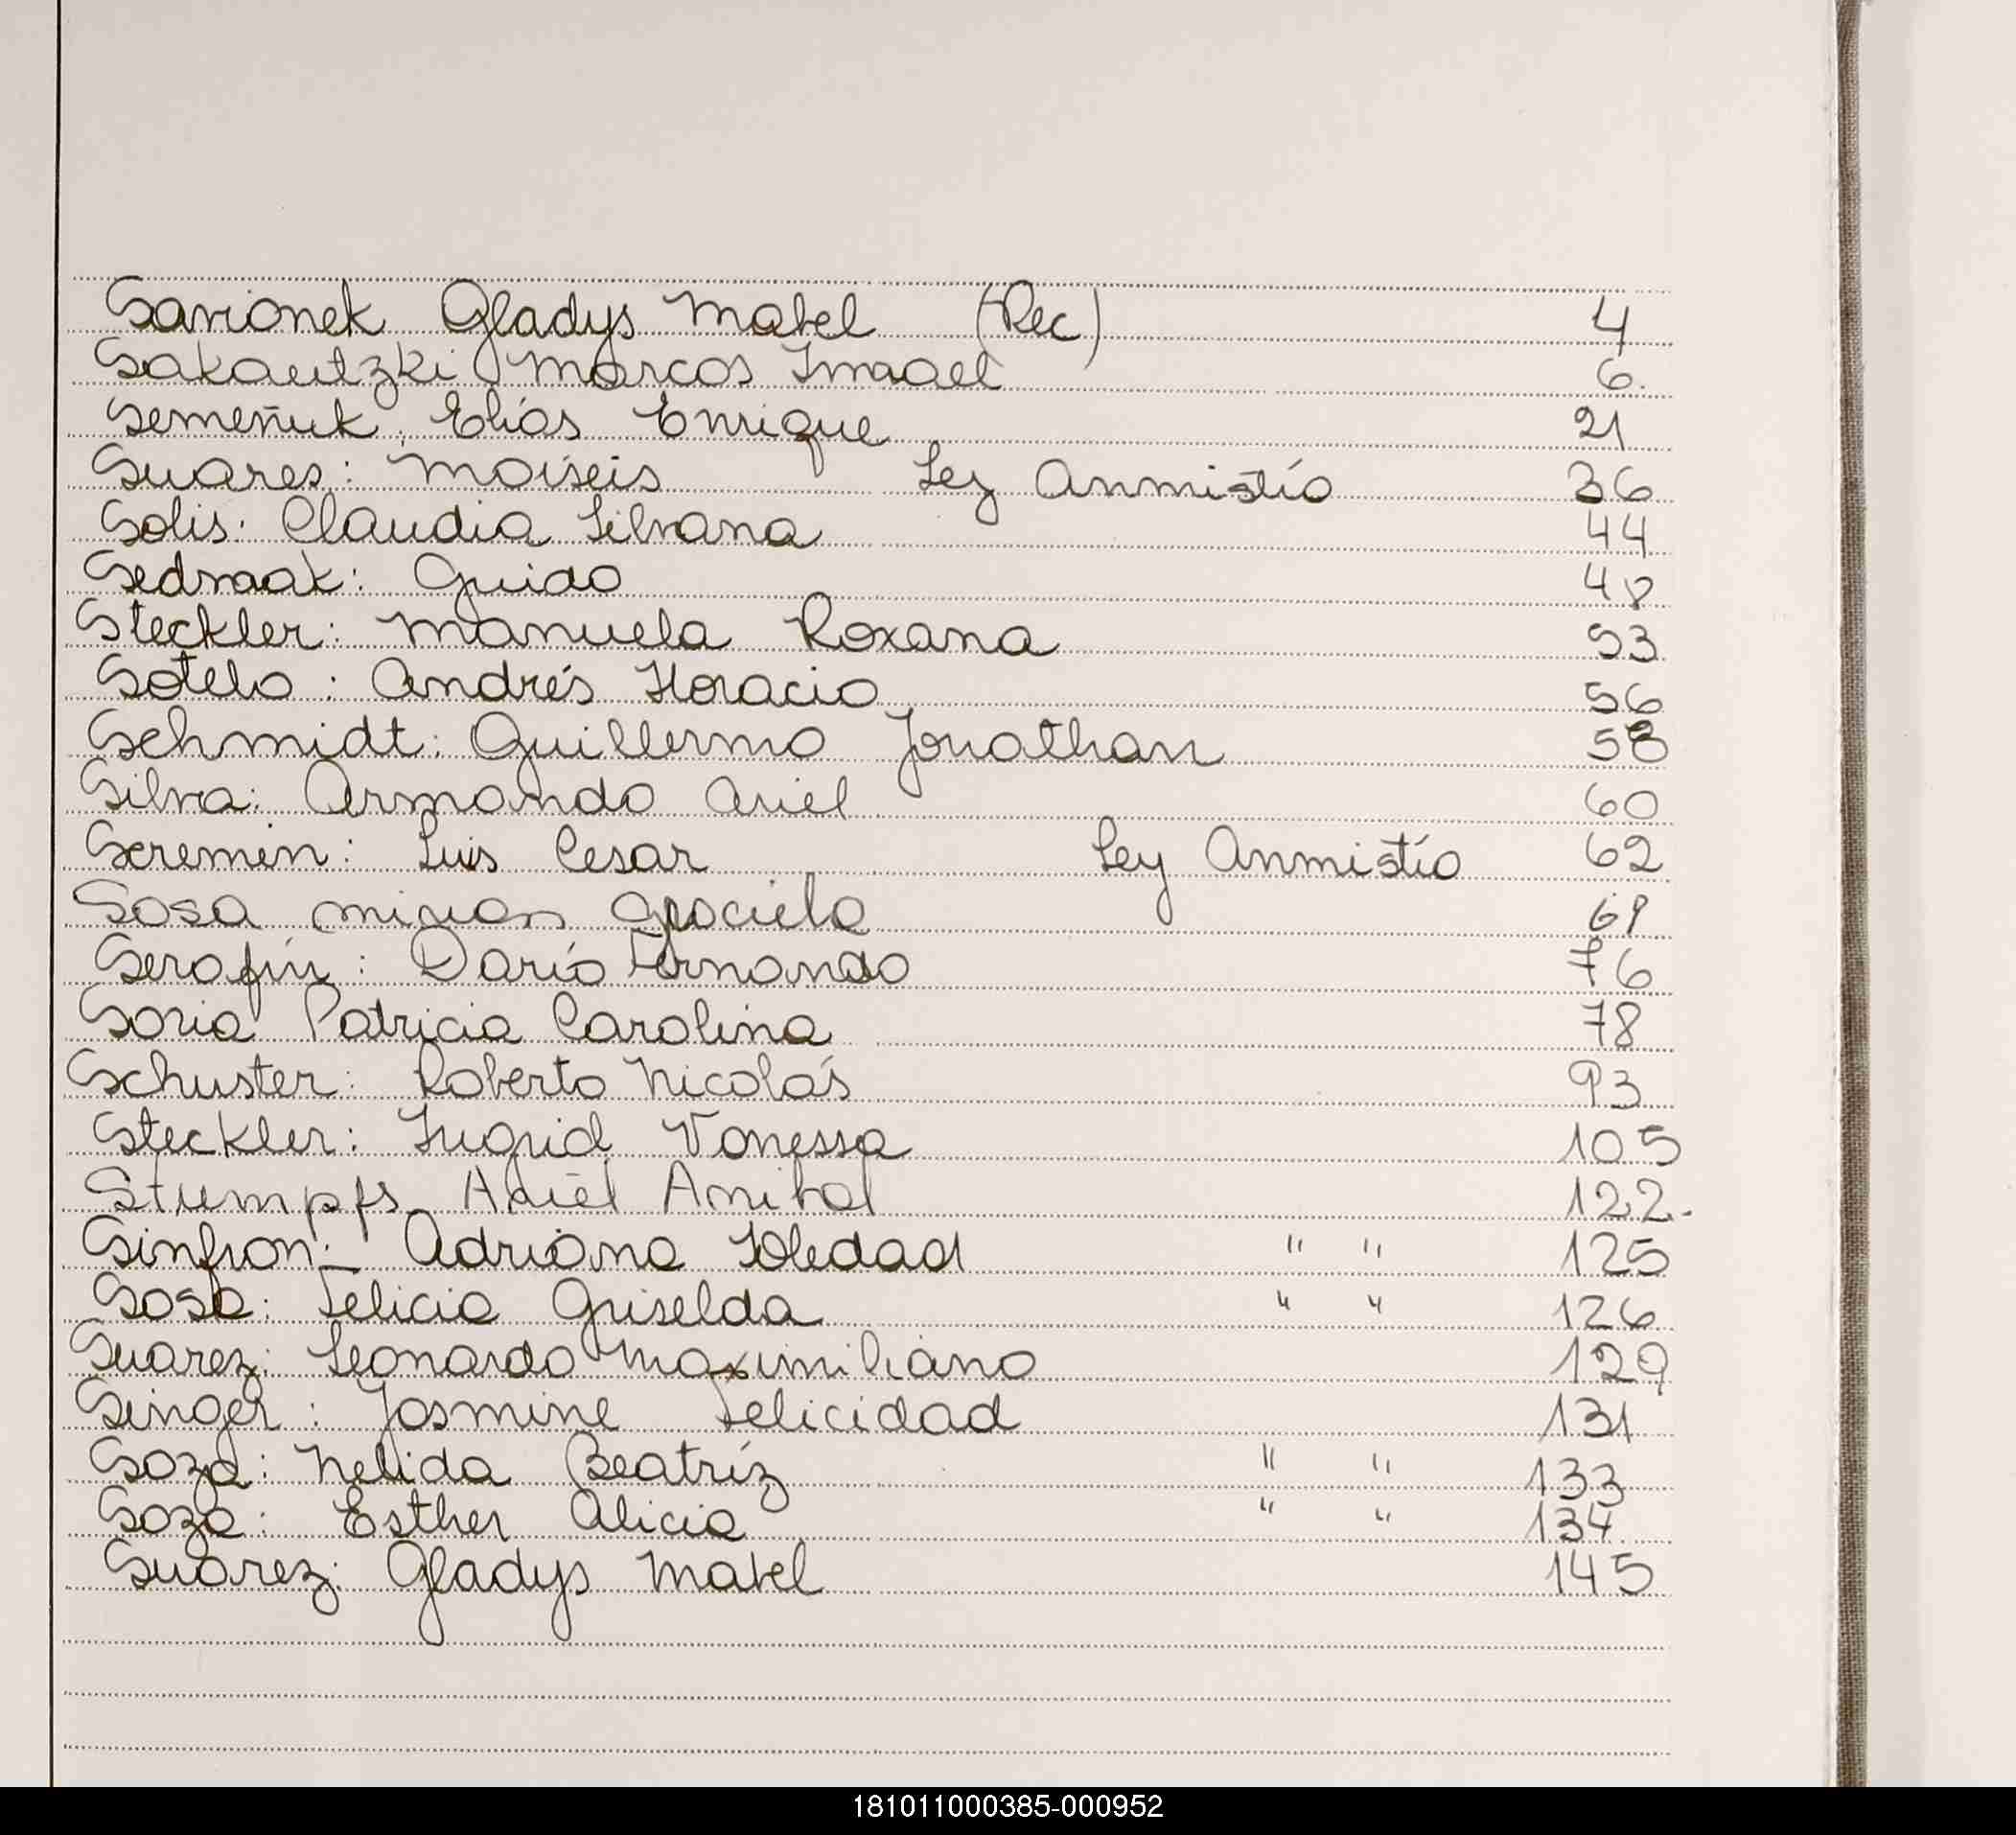 Savionek Gladys Mabel (Rec) 4
Sakautzki Marcos Imaael 6.
Semeñuk, Elías Enrique 21
Suares: Moiseis Ley Anmistía 36
Solis: Claudia Silvana 44
Sedmak: Guido 48
Steckler: Manuela Roxana 53
Sotelo: Andrés Horacio 56
Schmidt: Guillermo Jonathan 58
Silva: Armando Ariel 60
Scremin: Luis Cesar Ley Anmistía 62
Sosa Mirian Graciela 69
Serafín: Darío Fernando 76
Soria Patricia Carolina 78
Schuster: Roberto Nicolás 93
Steckler: Ingrid Vanessa 105
Stumpfs Ariel Anibal 122.
Sinfron: Adriana Soledad " " 125
Sosa: Felicia Griselda " " 126
Suarez: Leonardo Maximiliano 129
Singer: Jasmine Felicidad 131
Soza: Nelida Beatríz " " 133
Soza: Esther Alicia " " 134
Suárez: Gladys Mabel 145
181011000385-000952